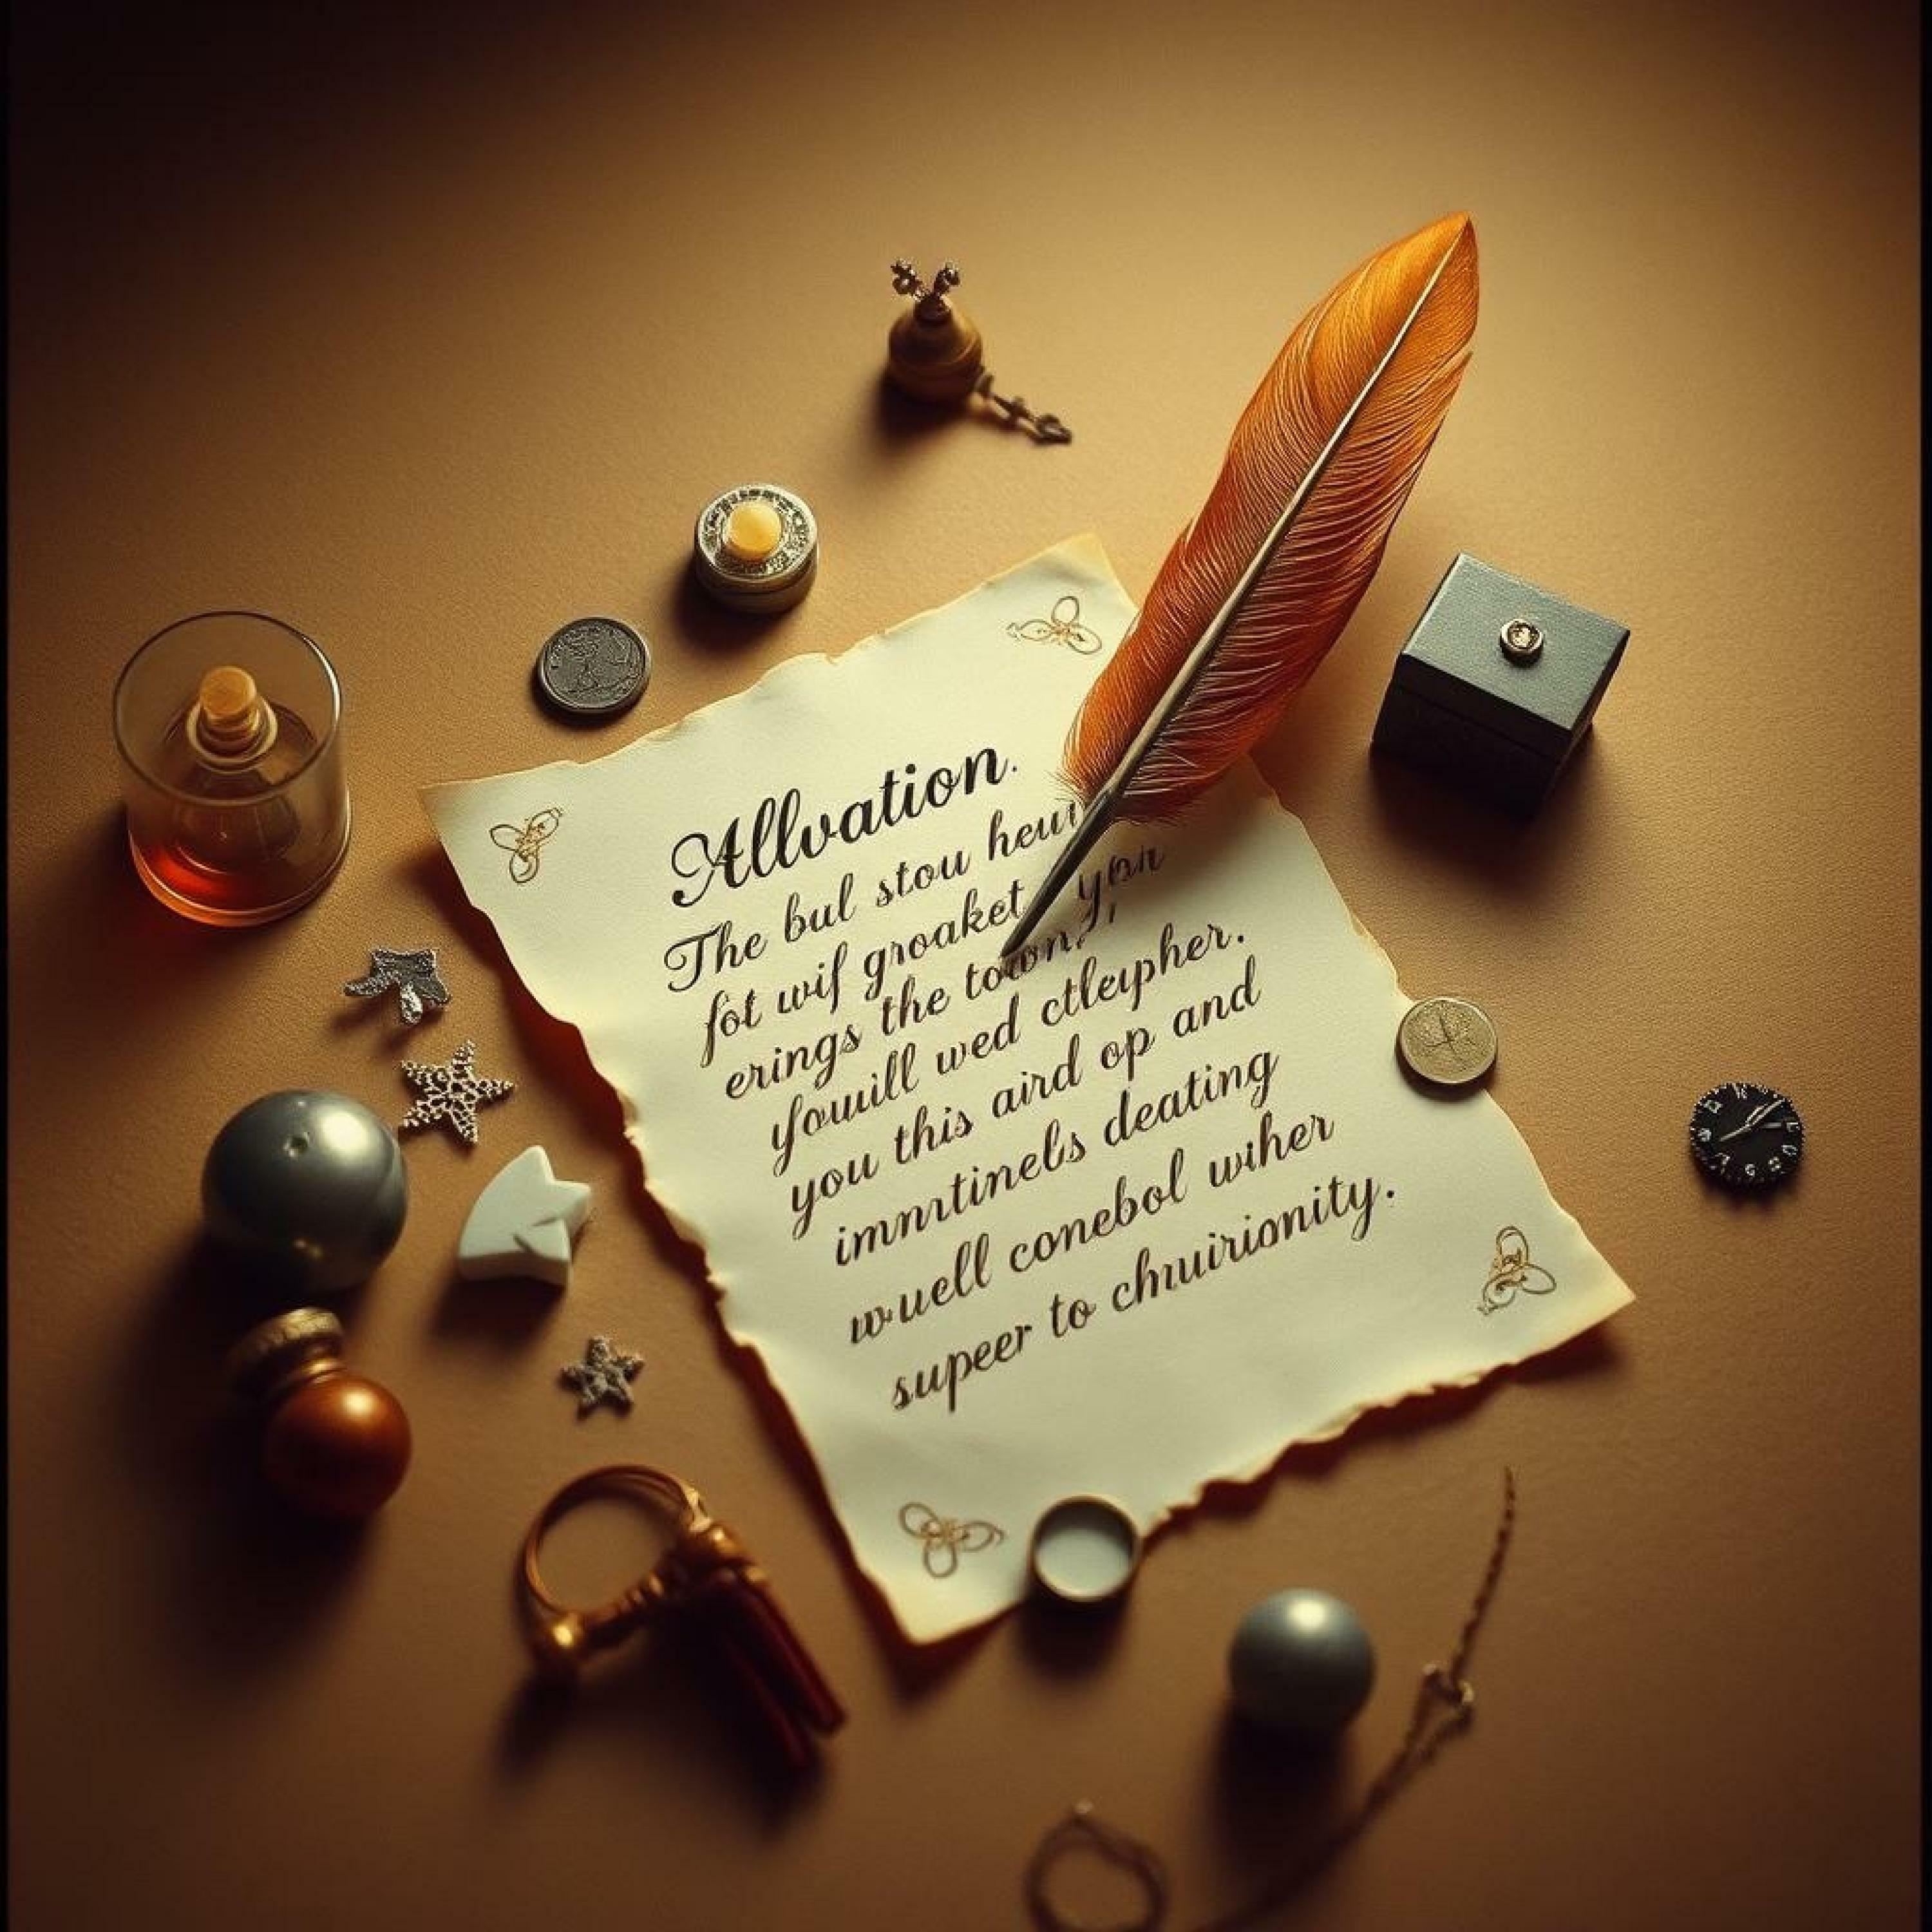 Allvation.
The bul stou
fot wif groaket
erings the town,
yowill wed ctleypher.
you this aird op and
imnrtinels deating
wuell conebol wiher
supeer to chnuirionity.